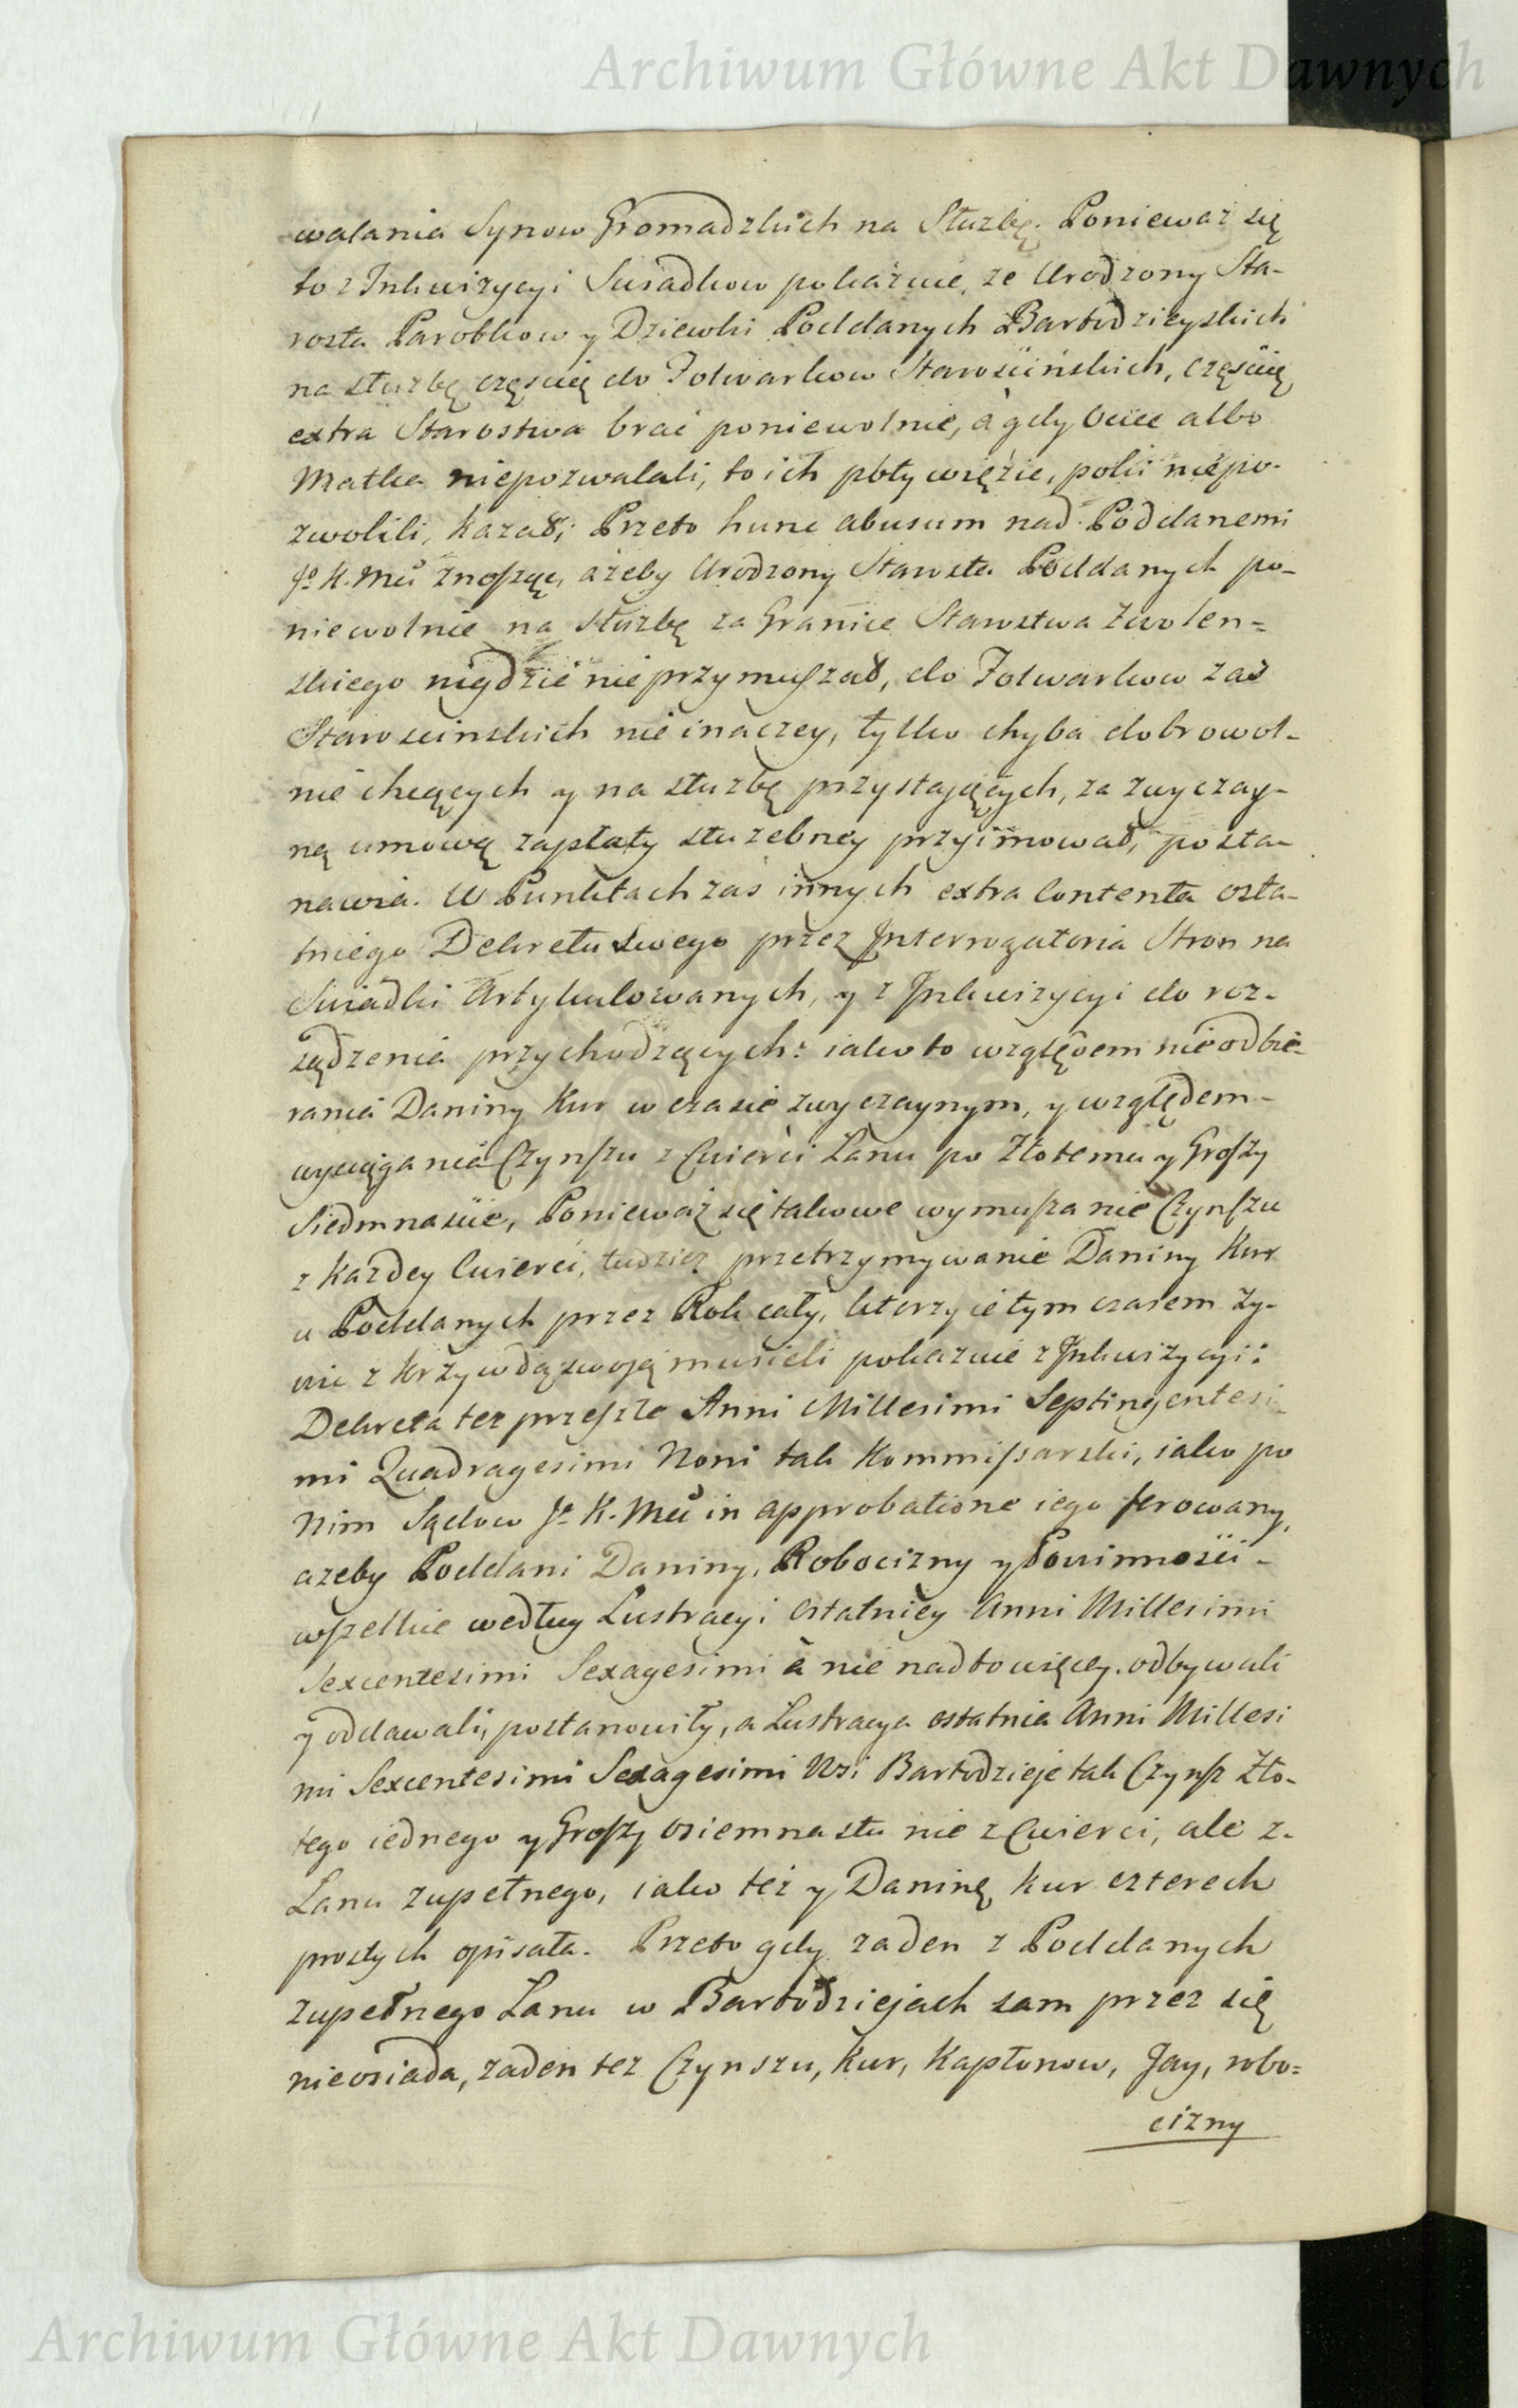 Archiwum Główne Akt Dawnych
walania Synow Gromadzkich na Służbę. Ponieważ się
to z Inkwizycyi Swiadkow pokazuie, ze Urodzony Sta-
rosta Parobkow y Dziewki Poddanych Bartodzieyskich
na służbę częscią do Folwarkow Starościńskich, częścią
extra Starostwa brać poniewolnie, à gdy Ociec albo
Matka niepozwalali, to ich poty więzić, poki niepo-
zwolili, kazał; Przeto hunc abusum nad Poddanemi
Jo K. Mci znosząc, ażeby Urodzony Starosta Poddanych po-
niewolnie na służbę za Granice Starostwa Zwolen=
skiego nigdzie nie przymuszał, do Folwarkow zaś
Staroscinskich nie inaczey, tylko chyba dobrowol-
nie chcących y na służbę przystających, za zwyczay-
ną umową zapłaty służebney przyimował, posta-
nawia. W Punktach zaś innych extra Contenta osta-
tniego Dekretu swego przez Interrogatoria Stron na
Swiadki Artykułowanych, y z Inkwizycyi do roz-
sądzenia przychodzących: iako to względem nieodbie-
rania Daniny Kur w czasie zwyczaynym, y względem-
wyciągania Czynszu z Cwierci Łanu po Złotemu y Groszy
Siedmnaście, Ponieważ się takowe wymuszanie Czynszu
z Kazdey Cwierci, tudziez przetrzymywanie Daniny Kur
u Poddanych przez Rok cały, ktorzy ie tym czasem zy-
wić z krzywdą swoją musieli pokazuie z Inkwizycyi:
Dekreta tez przeszłe Anni Millesimi Septingentesi-
mi Quadragesimi Noni tak Kommissarski, iako po
Nim Sądow Jo K. Mci in approbatione iego ferowany,
azeby Poddani Daniny, Robocizny y Powinności-
wszelkie według Lustracyi ostatniey Anni Millesimi
Sexcentesimi Sexagesimi à nie nadto więcey odbywali
y oddawali, postanowiły, a Lustracya ostatnia Anni Millesi
mi Sexcentesimi Sexagesimi Wsi Bartodzieje tak Czynsz Zło-
tego iednego y Groszy osiemnastu nie z Cwierci, ale z-
Lanu zupełnego, iako też y Daninę kur czterech
prostych opisała. Przeto gdy zaden z Poddanych
zupełnego Lanu w Bartodziejach sam przez się
nieosiada, zaden tez Czynszu, Kur, Kapłonow, Jay, robo=
cizny
Archiwum Główne Akt Dawnych